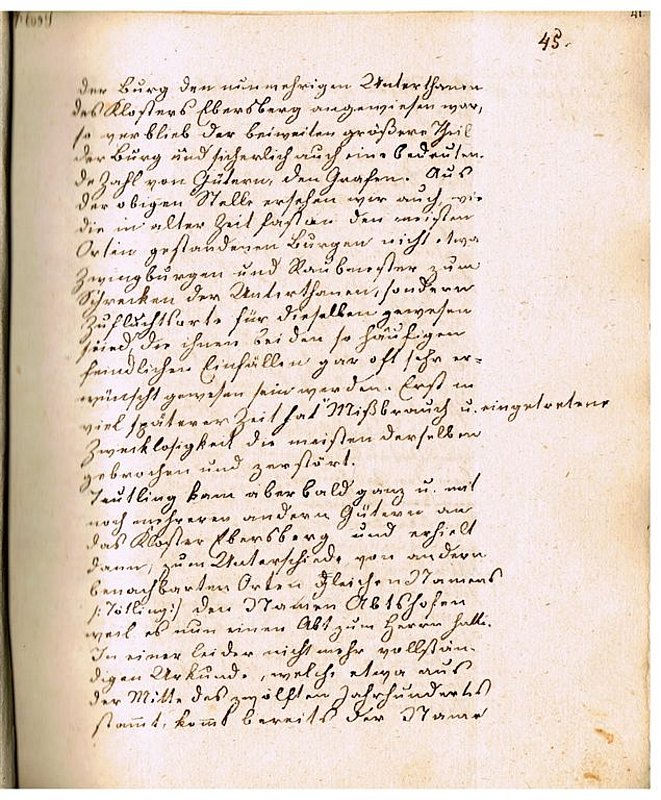 45.
der Burg den nunmehrigen Unterthanen
des Klosters Ebersberg angewiesen war,
so verblieb der beiweiten größere Theil
der Burg und sicherlich auch eine bedeuten-
de Zahl von Gütern, den Grafen. Aus
der obigen Stelle ersehen wir auch, wie
die in alter Zeit fast an den meisten
Orten gestandenen Burgen nicht etwa
Zwingburgen und Raubnester zum
Schrecken der Unterthanen, sondern
Zufluchtsorte für dieselben gewesen
seien, die ihnen bei den so häufigen
feindlichen Einfällen gar oft sehr er-
wünscht gewesen sein werden. Erst in
viel späterer Zeit hat Mißbrauch u. eingetretene
Zwecklosigkeit die meisten derselben
gebrochen und zerstört.
Teutling kam aber bald ganz u. mit
noch mehreren andern Gütern an
das Kloster Ebersberg und erhielt
dann, zum Unterschiede von andern
benachbarten Orten gleichen Namens
/: Tötling :/ den Namen Abtshofen
weil es nun einen Abt zum Herrn hatte.
In einer leider nicht mehr vollstän-
digen Urkunde, welche etwa aus
der Mitte des zwölften Jahrhunderts
stammt, kommt bereits der Name